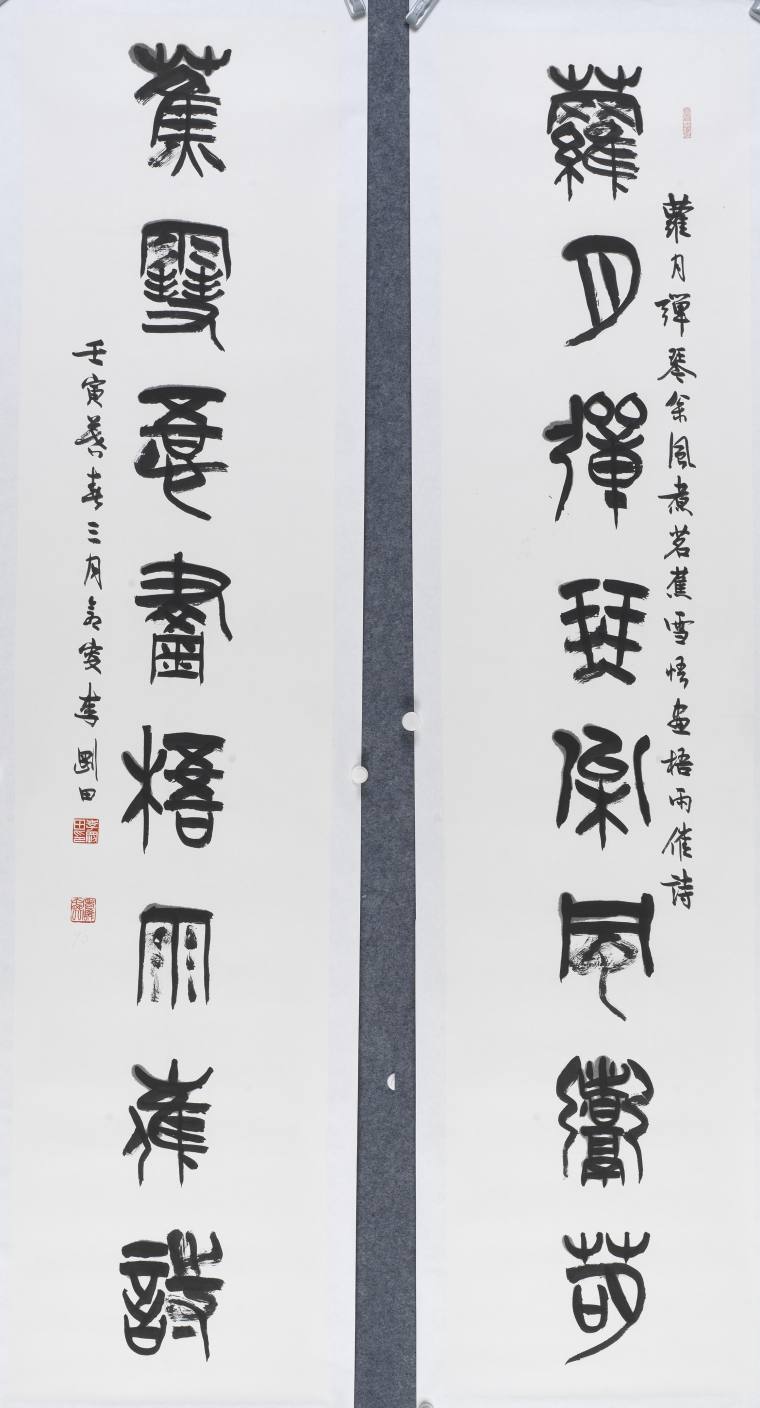 蘿月彈琴枀風煮茗蕉雪悟畫梧雨催詩
蘿月彈琴枀風煮茗
蕉雪悟畫梧雨催詩
壬寅暮春三月李剛田